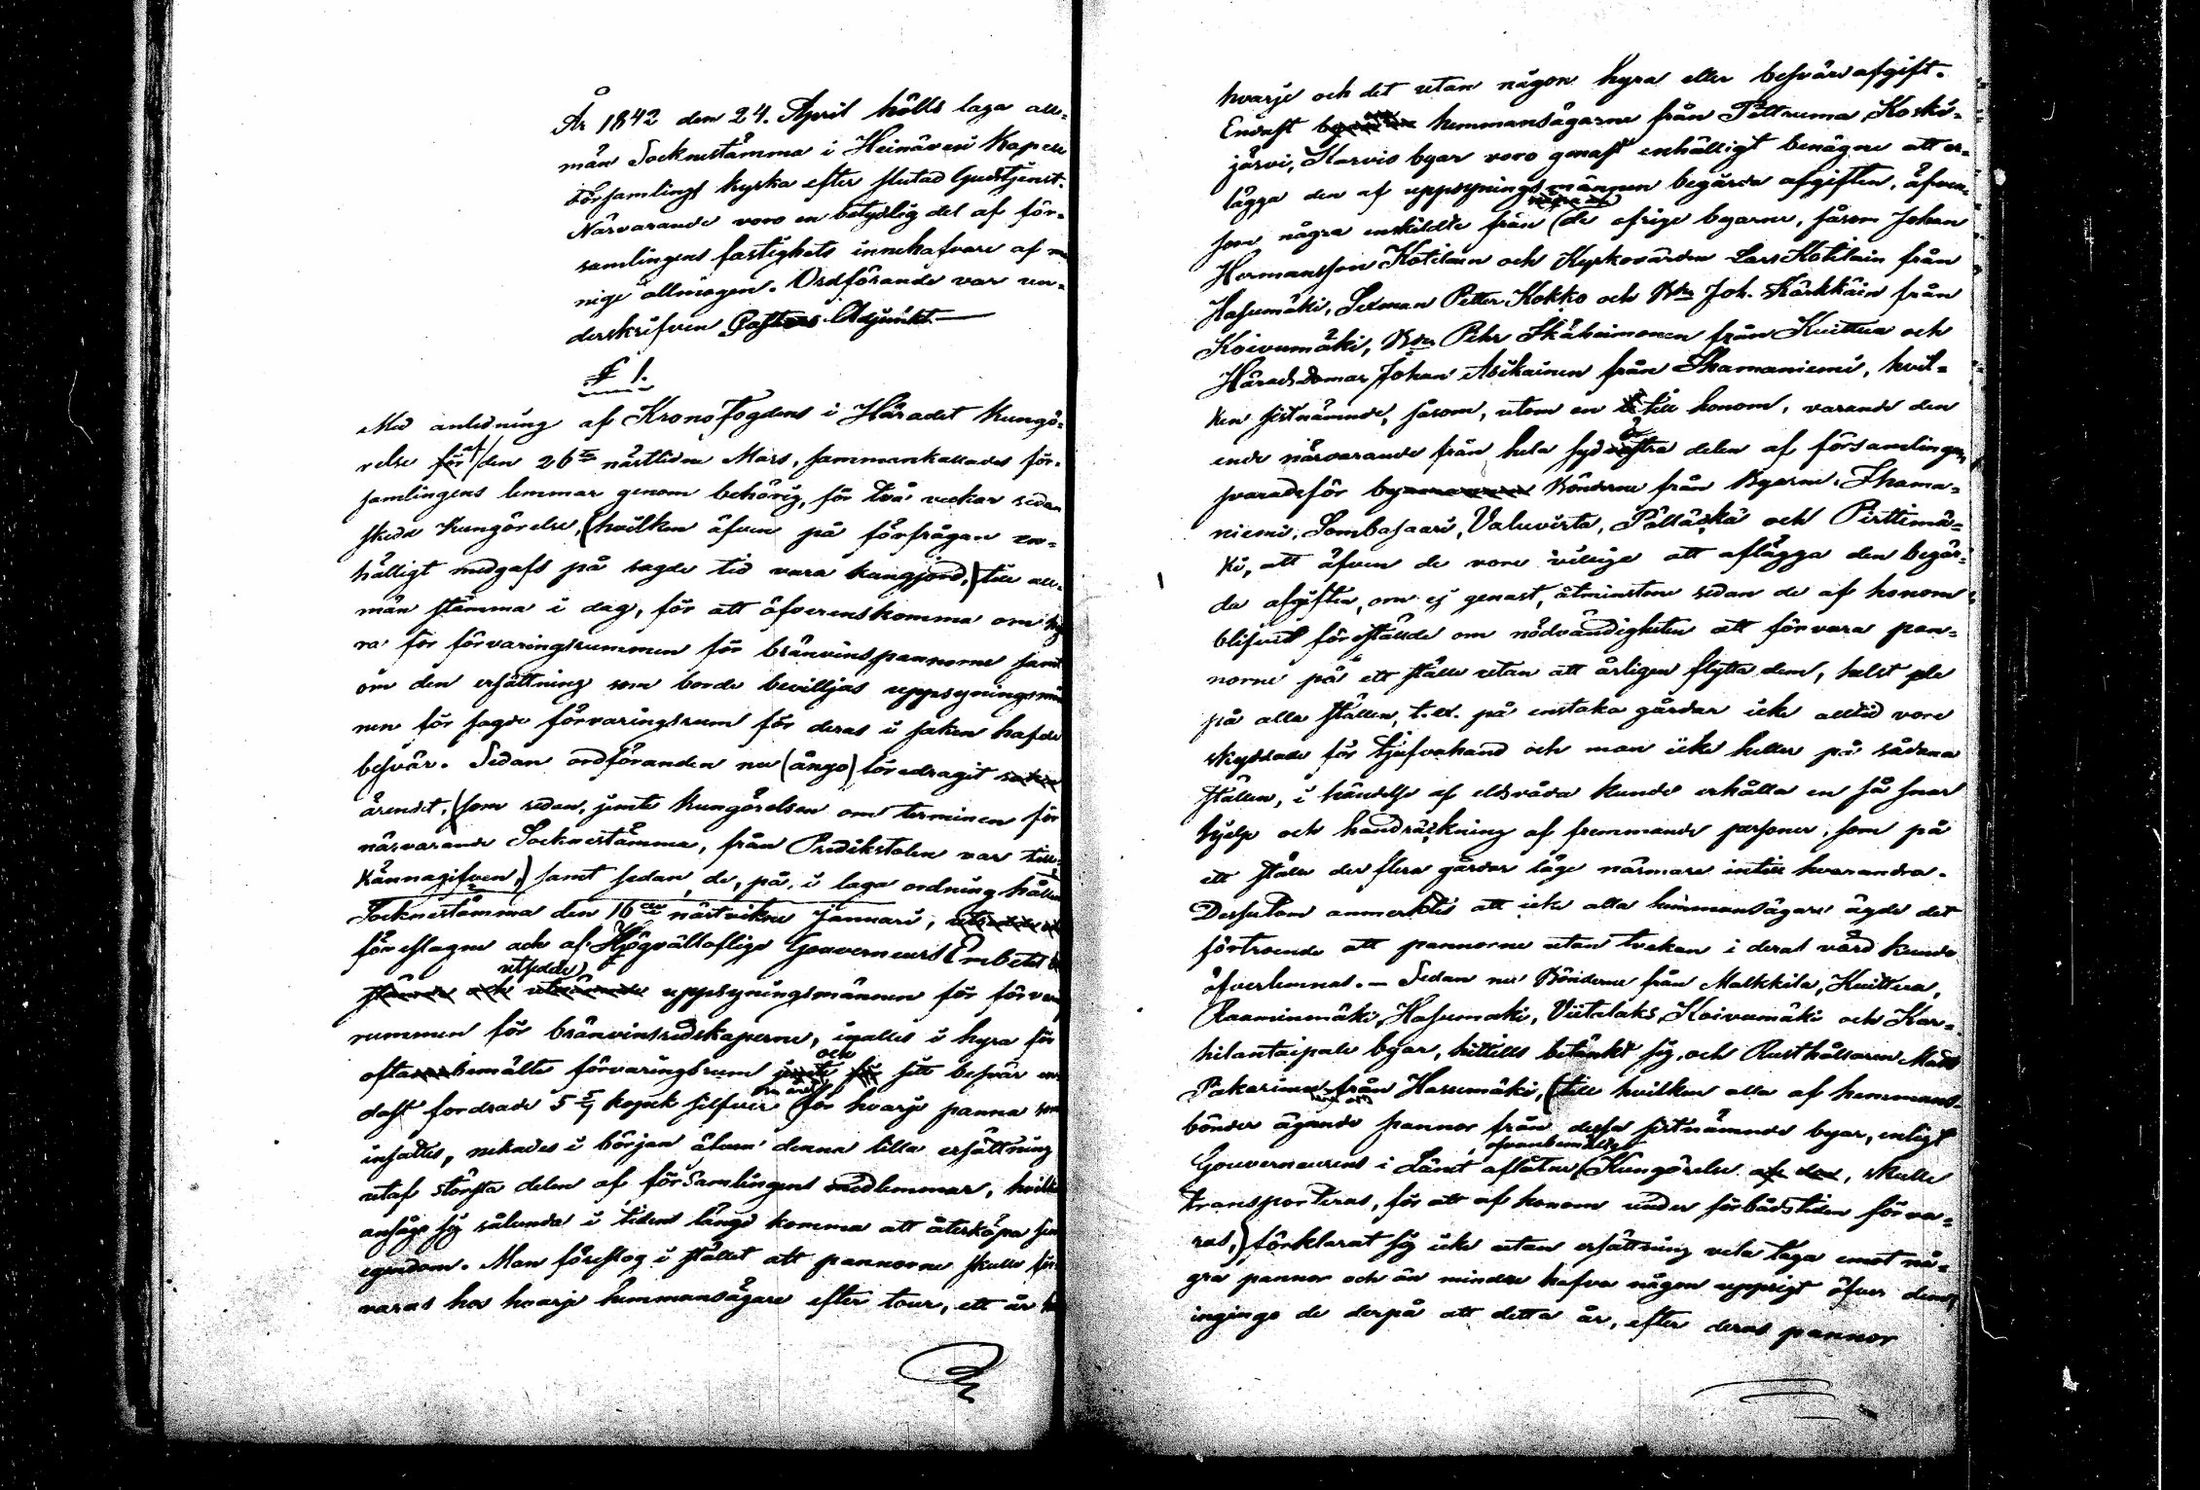 År 1842 den 24. April hölls laga all-
män Socknestämma i Heinävesi Kapell
Församlings kyrka efter slutad Gudstjenst.
Närvarande voro en betydlig del af för-
samlingens fastighets innehafvare af me
nige allmogen. Ordförande var un-
derskrifven Pastors Adjunkt.
§ 1.
Med anledning af Kronofogdens i Häradet Kungö-
relse af den 26 nästlidne Mars, sammankallades för-
samlingens lemmar genom behörig, för två veckor sedan
skedd Kungörelse, (hvilken äfven på förfrågan en-
hälligt medgafs på sagde tid vara kungjord,) till all-
män stämma i dag, för att öfverenskomma om hy
ra för förvaringsrummen för bränvinspannorne samt
om den ersättning som borde beviljas uppsyningsmän
nen för sagde förvaringsrum för deras i saken hafde
besvär. Sedan ordföranden nu (ånyo) föredragit
ärendet, (som redan, jemte Kungörelsen om terminen för
närvarande Socknestämma, från Predikstolen var till-
kännagifven,) samt sedan de, på, i laga ordning hållen
Socknestämma den 16 nästvikne Januari,
föreslagne och af Högvälloflige Gouverneurs Embetet
utsedde
uppsyningsmännen för förvarings
rummen för bränvinsredskaperne, istället i hyra för
och
oftabemälte förvaringsrum sitt besvär en-
dast fordrade 5 5/7 kopek silfver för hvarje panna som
insattes, nekades i början äfven denna lilla ersättning
utaf största delen af församlingens medlemmar, hvilka
ansågo sig sålunda i tidens längd komma att återköpa sin
egendom. Man föreslog i stället att pannorne skulle för-
varas hos hvarje hemmansägare efter tour, ett år hos
hvarje och det utan någon hyra eller besvärsafgift.
Endast hemmansägarne från Pölttruma Koski-
järvi, Karvio byar voro genast enhälligt benägne att er-
lägga den af uppsyningsmännen begärda afgiften, äfven-
några af
som några enskildte från (de öfrige byarne, såsom Johan
Hermansson Kotilain och Kyrkovärden Lars Kotilain från
Hasumäki, Sexman Petter Kokko och Bdn Joh. Kärkkäin från
Koivumäki, Bdn Pehr Ikäheimonen från Kuittua och
Häradsdomar Johan Asikainen från Ihamaniemi, hvil-
ken sistnämnde, såsom, utom en till honom, varande den
ende närvarande från hela sydöstra delen af församlingen,
svarade för Bönderne från Byarne Ihama-
niemi, Sombasaari, Valuvirta, Pölläkkä och Pirttimä-
ki, att äfven de vore villige att aflägga den begär-
da afgiften, om ej genast, åtminstone sedan de af honom
blifvit föreställde om nödvändigheten att förvara pan-
norne på ett ställe utan att årligen flytta dem, helst de
på alla ställen, t.ex. på enstaka gårdar icke alltid vore
skyddade för tjufvahand och man icke heller på sådana
ställen, i händelse af eldsvåda kunde erhålla en så snar
hjelp och handräckning af fremmande personer, som på
ett ställe der flera gårdar läge närmare intill hvarandra.
Dessutom anmerktes att icke alla hemmansägare ägde det
förtroende att pannorne utan tvekan i deras vård kunde
öfverlemnas. — Sedan nu Bönderne från Malkkila, Kuittua,
Raaminmäki, Hasumäki, Viitalaks, Koivumäki och Kar-
hilantaipale byar, hittills betänkt sig, och Rusthållaren Mats
Pakarinen från Hasumäki, (till hvilken alla af hemmans-
bönder ägande pannor från dessa sistnämnde byar, enligt
ofvanbemälte
Gouverneurens i Länet aflåtne (Kungörelse, skulle
transporteras, för att af honom under förbudstiden förva-
ras,) förklarat sig icke utan ersättning vela taga emot nå-
gra pannor och än mindre hafva någon uppsigt öfver dem,
ingingo de derpå att detta år, efter deras pannor